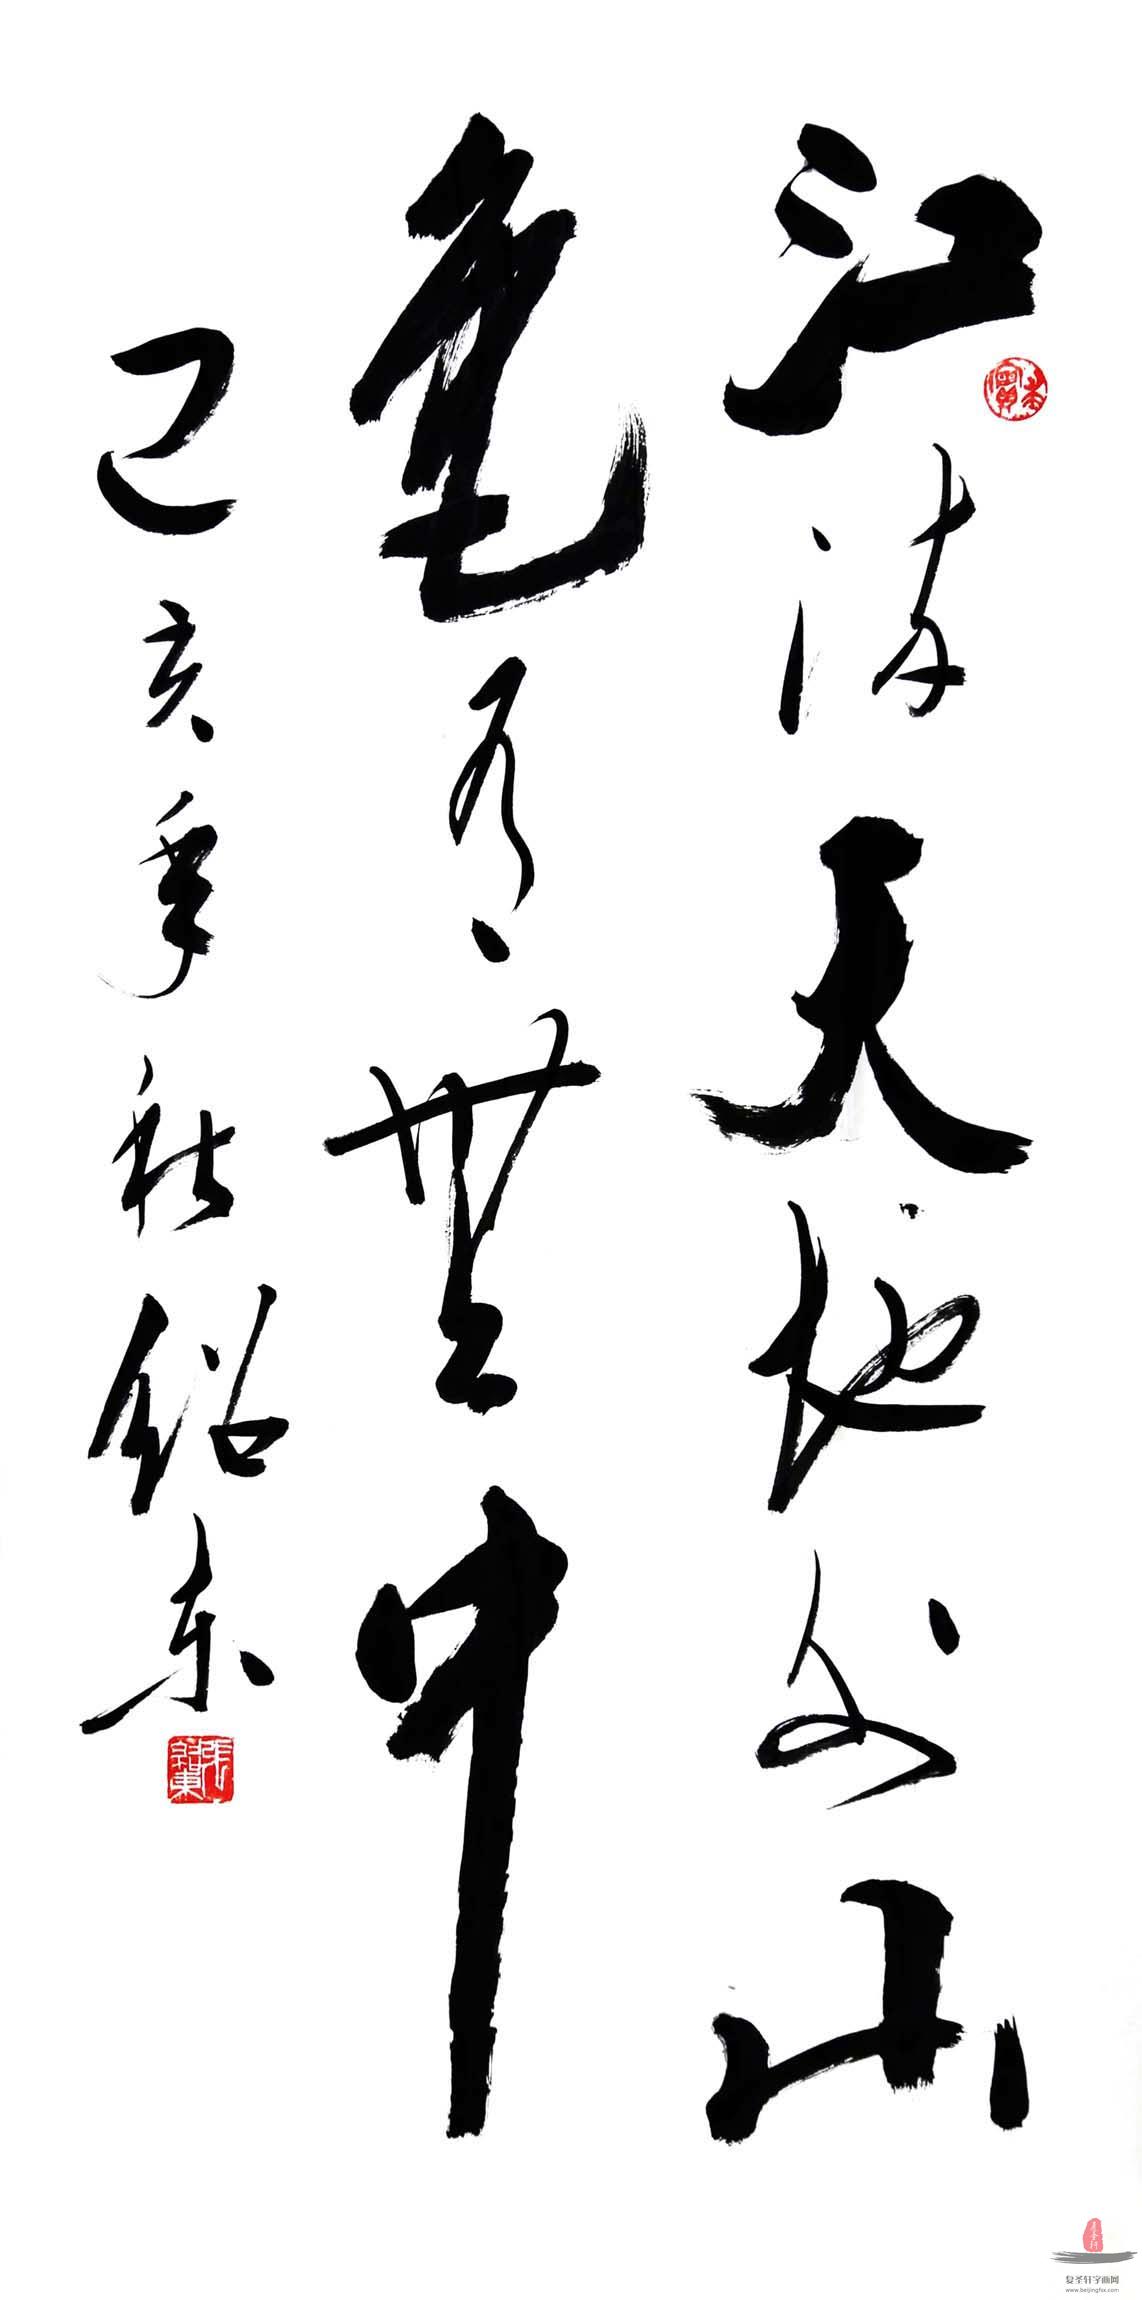 江流天地外山
色有無中
己亥年秋绍东
張紹東
复圣轩字画网
www.beijingfsx.com